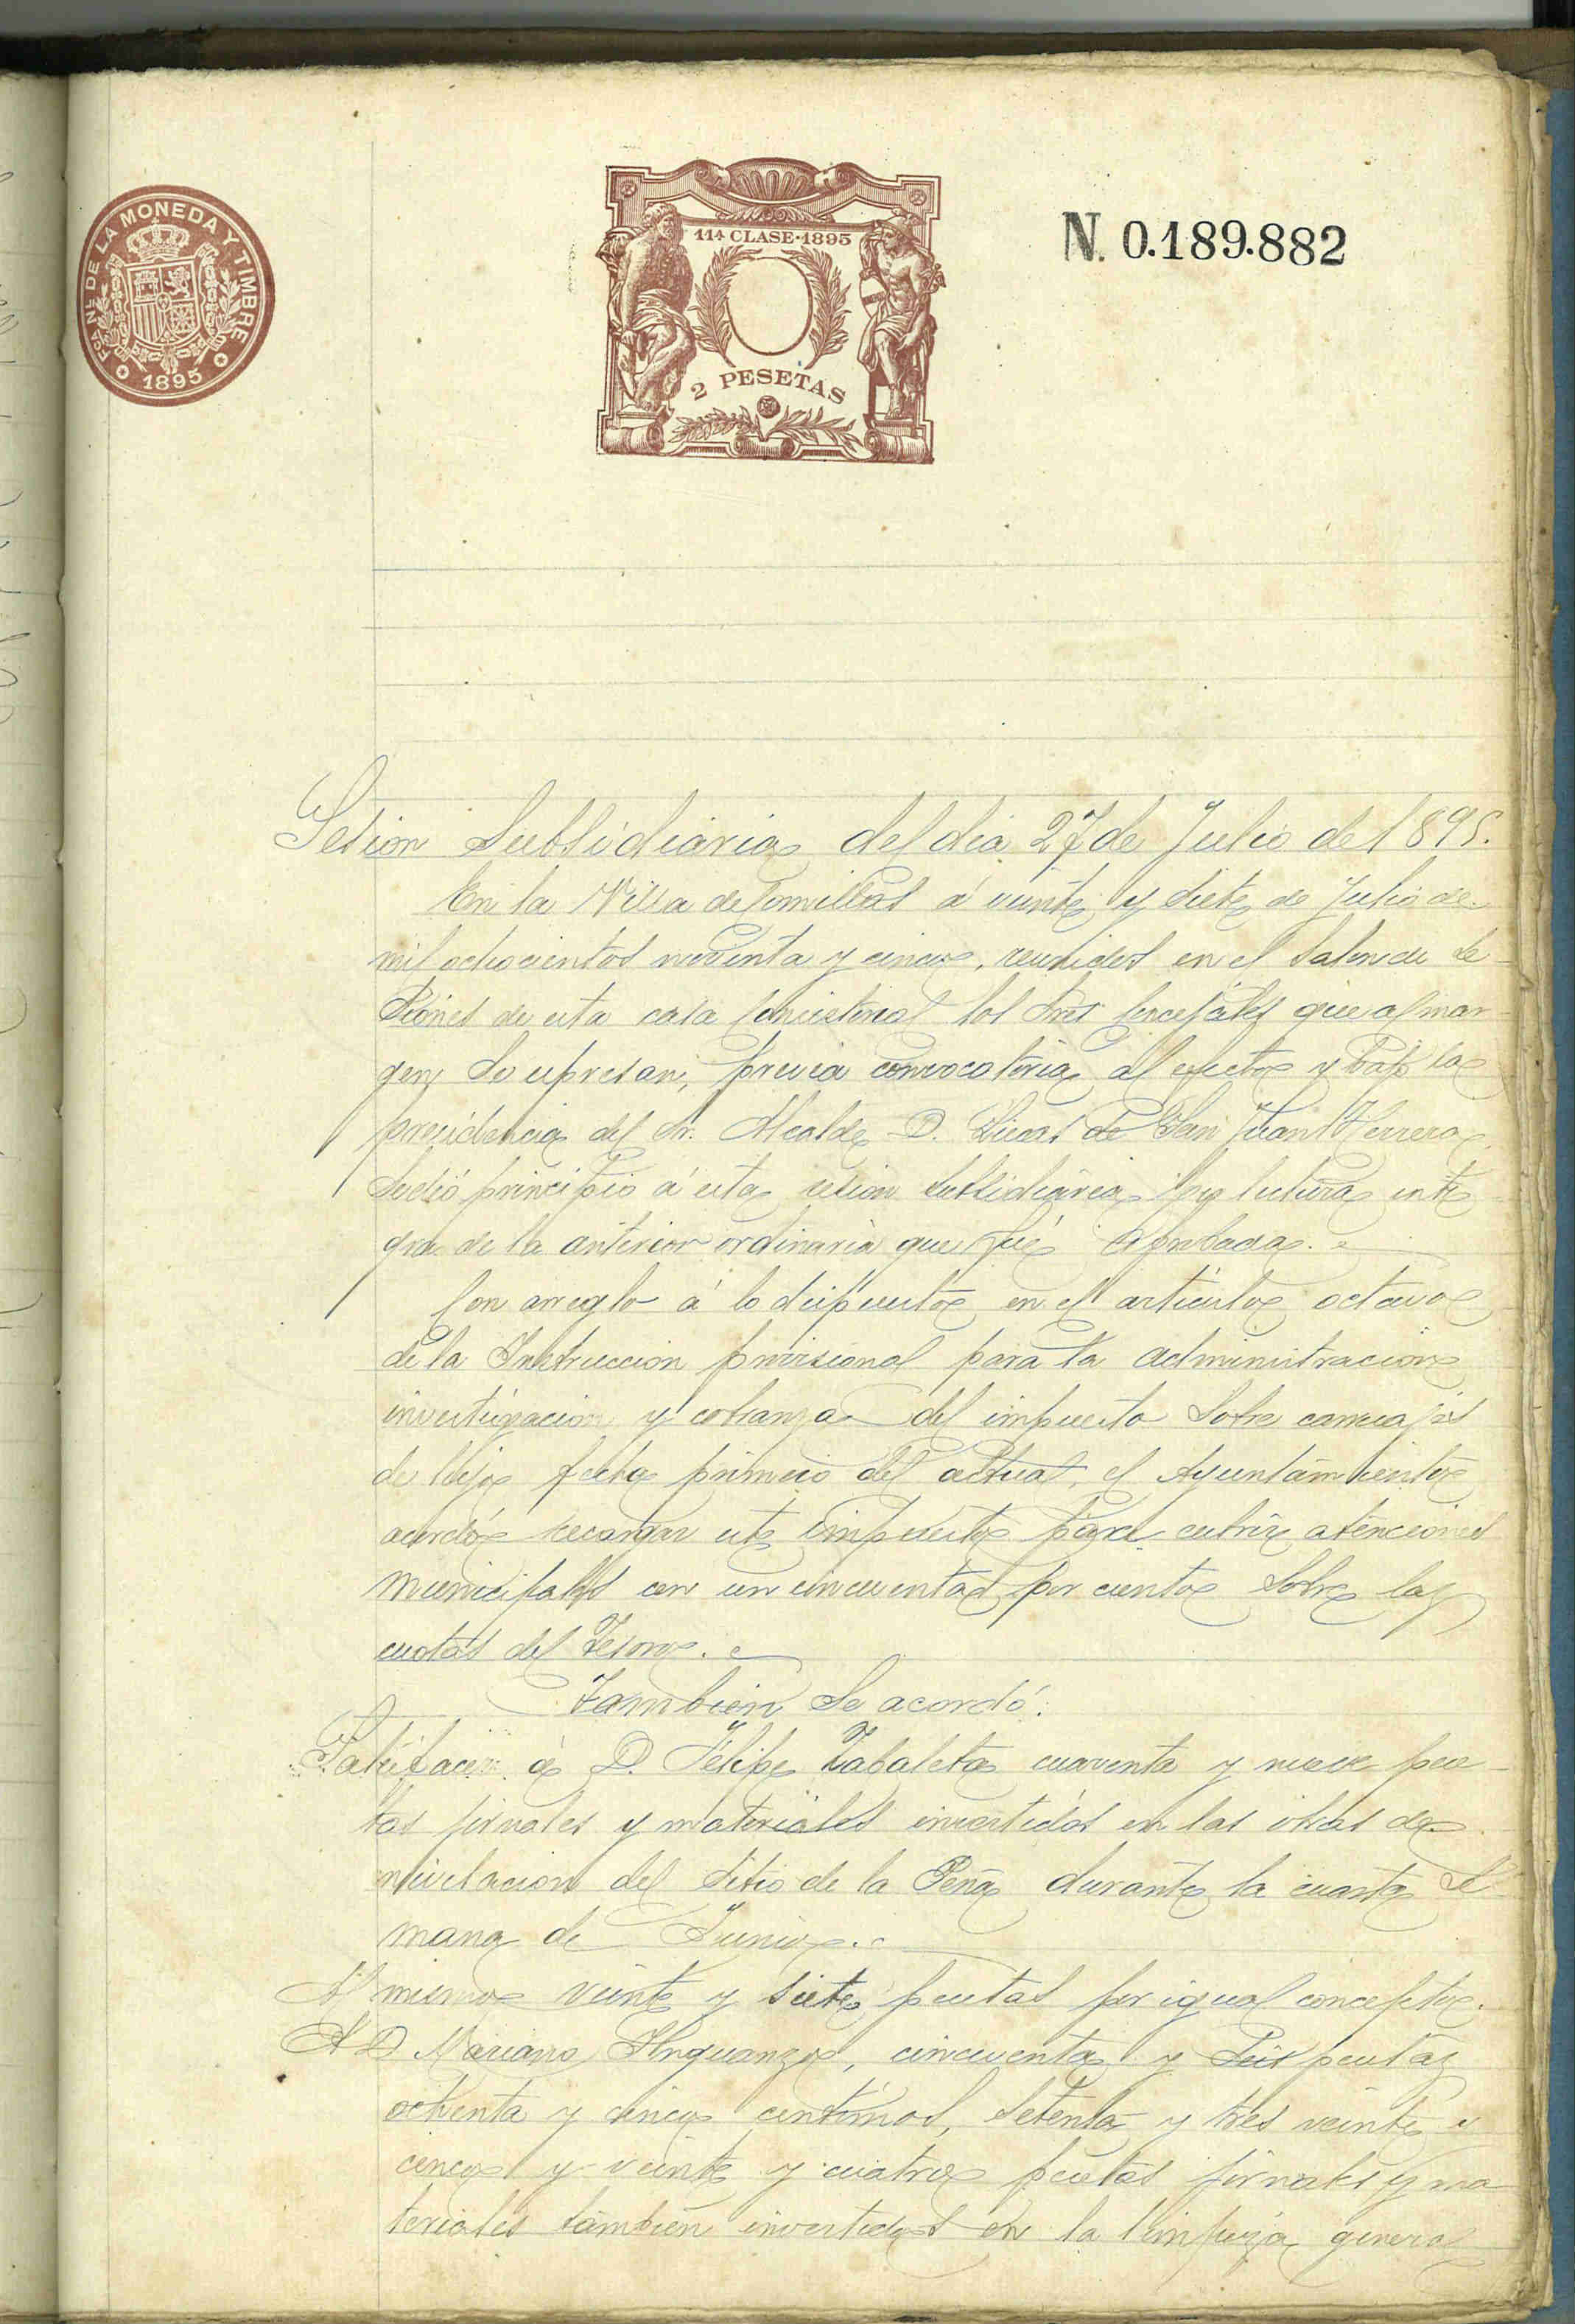 FCA. NL. DE LA MONEDA Y TIMBRE
1895
11ª CLASE·1895
2 PESETAS
N. 0.189.882
Sesion Subsidiaria del dia 27 de Julio de 1895.
En la Villa de Comillas á veinte y siete de Julio de
mil ochocientos noventa y cinco, reunidos en el Salon de Se-
siones de esta casa Consistorial los Sres Concejales que al mar-
gen se expresan, previa convocatoria al efecto y bajo la
presidencia del Sr. Alcalde D. Lucas de San Juan Herrera,
se dió principio á esta sesion subsidiaria por lectura inte
gra de la anterior ordinaria que fué aprobada.
Con arreglo á lo dispuesto en el articulo octavo
de la Instruccion provisional para la administracion
investigacion y cobranza del impuesto sobre carruajes
de lujo fecha primero del actual, el Ayuntamiento
acordó recargar este impuesto para cubrir atenciones
municipales con un cincuenta por ciento sobre las
cuotas del Tesoro.
Tambien se acordó:
Satisfacer á D. Felipe Zabaleta cuarenta y nueve pese-
tas jornales y materiales invertidos en las obras de
nivelacion del sitio de la Peña durante la cuarta se-
mana de Junio.
Al mismo veinte y siete pesetas por igual concepto.
A D Mariano Ynguanzo, cincuenta y seis pesetas
ochenta y cinco centimos, setenta y tres veinte y
cinco y veinte y cuatro pesetas jornales y ma
teriales tambien invertidos en la limpieza general